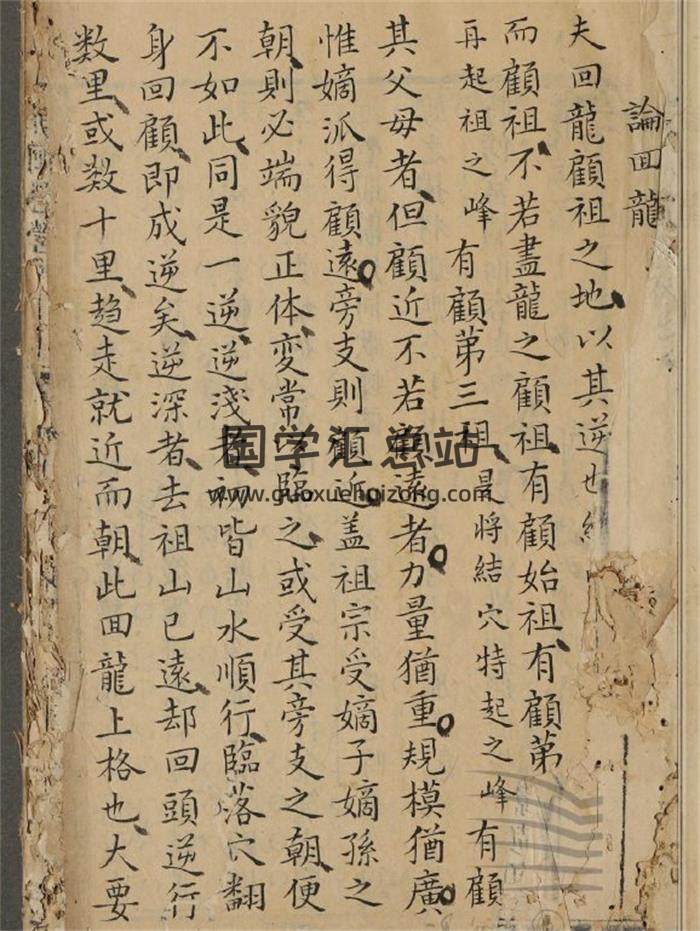 論回龍
夫回龍顧祖之地以其逆也
而顧祖不若盡龍之顧祖有顧始祖有顧第
再起祖之峰有顧第三祖是將結穴特起之峰有顧
其父母者但顧近不若顧遠者力量猶重規模猶廣
惟嫡派得顧遠旁支則顧近盖祖宗受嫡子嫡孫之
朝則必端貌正体变常以臨之或受其旁支之朝便
不如此同是一逆逆淺者初皆山水順行臨落穴翻
身回顧即成逆矣逆深者去祖山已遠却回頭逆行
数里或数十里趋走就近而朝此回龍上格也大要
国学汇总站
www.guoxuehuizong.com